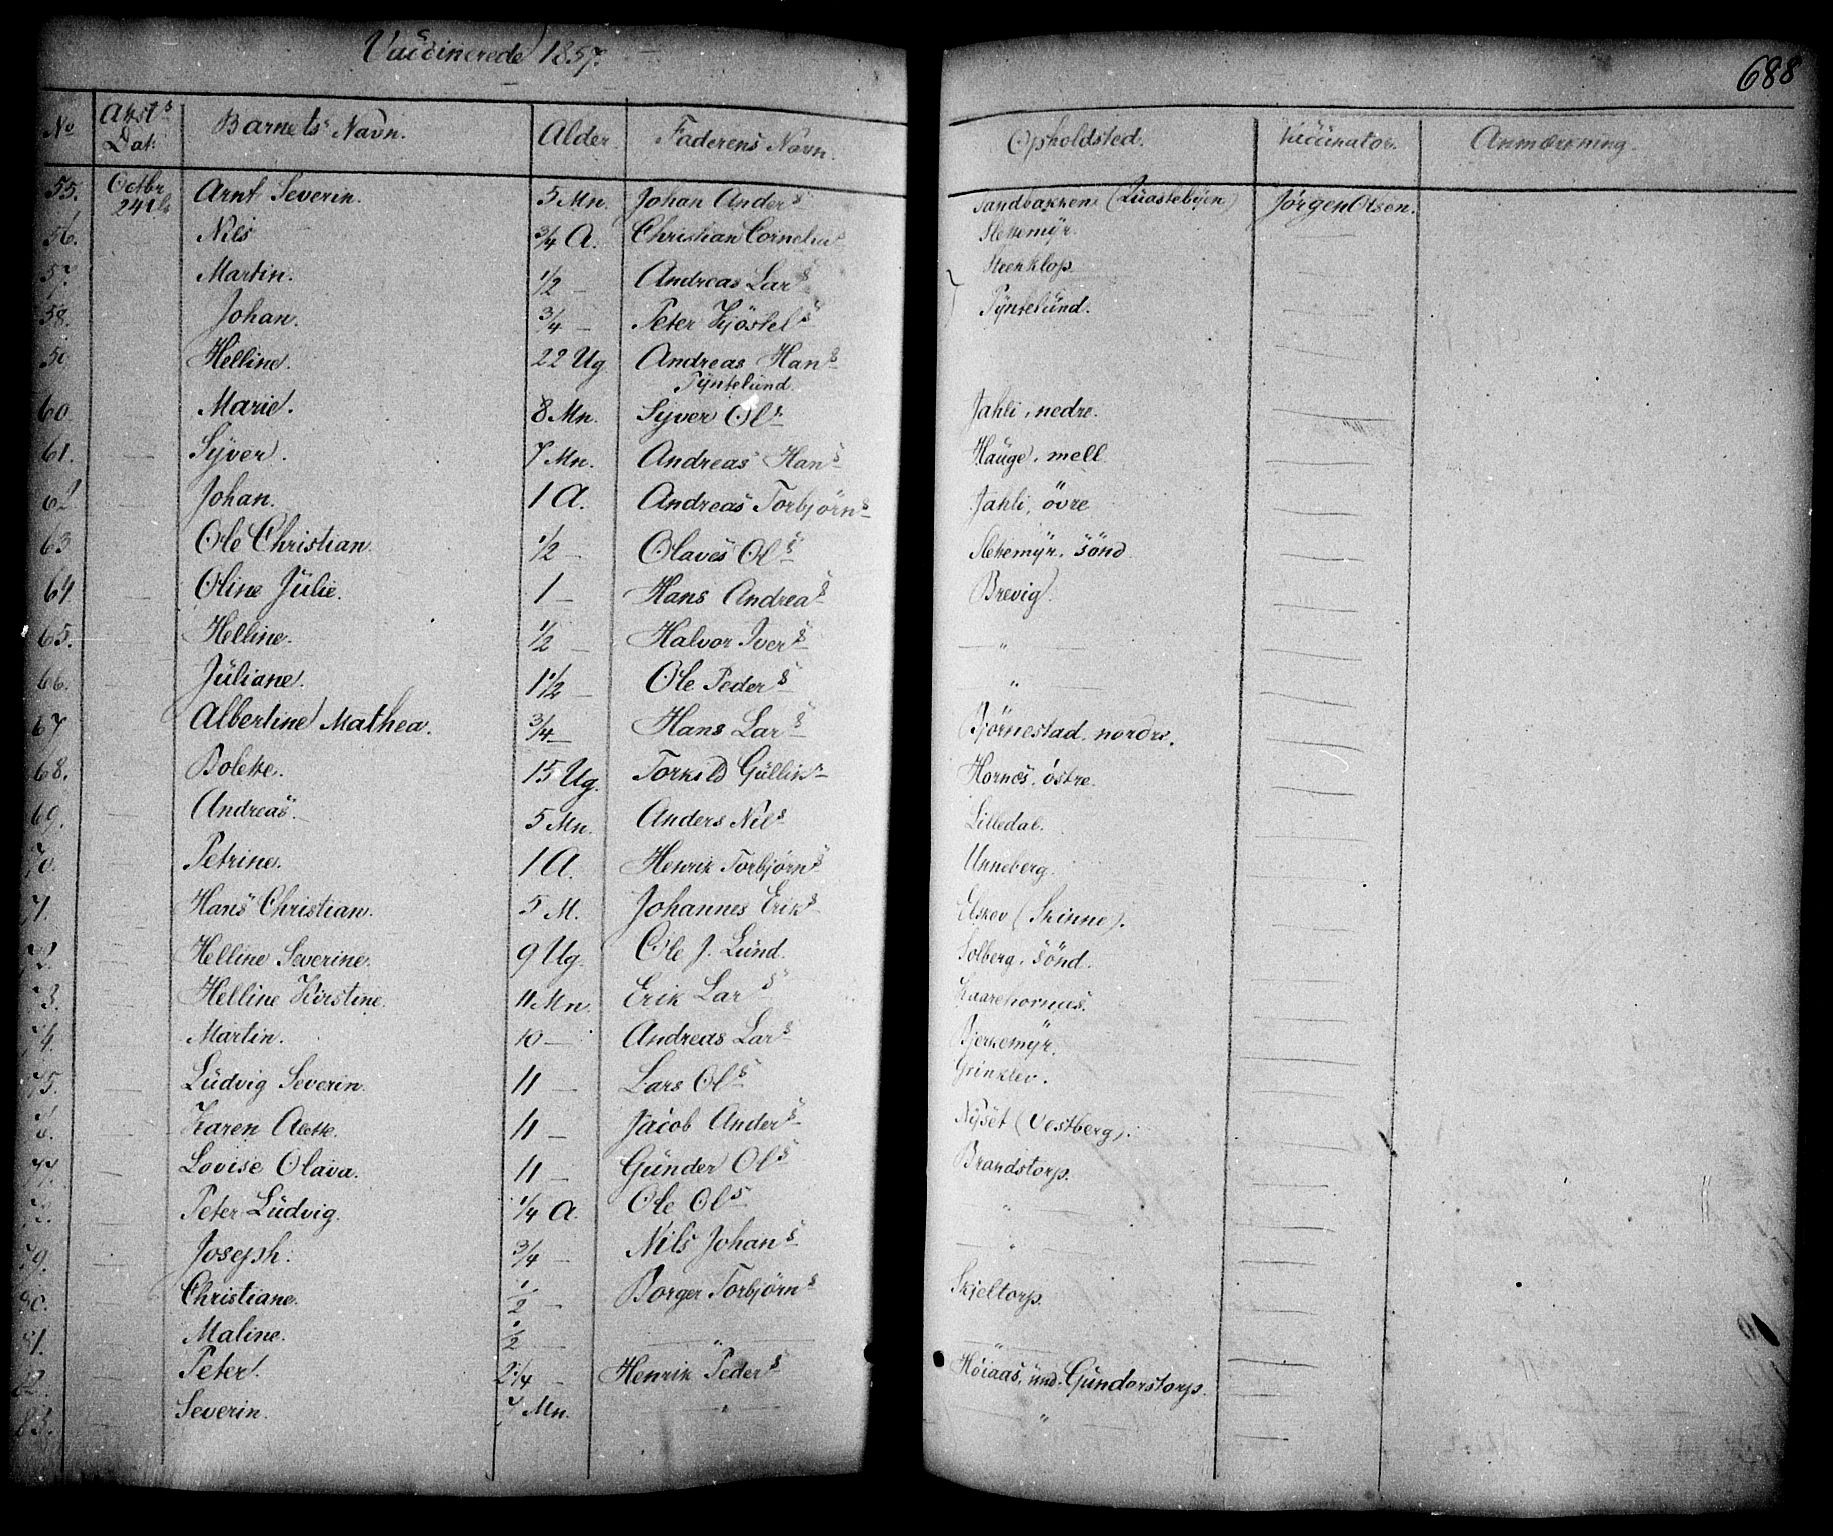 Vaccinerede 1857.
688
No Attst.s Dat: Barnets Navn. Alder. Faderens Navn. Opholdsted. Vaccinator. Anmærkning.
55. Octbr 24de Arnt Severin. 5 Mn. Johan Anders Sandbakken (Quastebyen) Jörgen Olsen.
56. — Nils 3/4 A. Christian Cornelius Slettemÿr. —
57. — Martin. 1/2 — Andreas Lars Steenklop —
58. — Johan. 3/4 — Peter Kjöstels Tÿntelund. —
59 — Helline. 22 Ug. Andreas Hans —
Tÿntelund
60. — Marie. 8 Mn. Syver Ols Jahli, nedre. —
61. — Syver. 7 Mn. Andreas Hans Hauge, mell. —
62 — Johan. 1 A. Andreas Torbjörns Jahli, övre —
63 — Ole Christian. 1/2 — Olaves Ols Slettemÿr, sönd —
64 — Oline Julie. 1 — Hans Andreas Brevig. —
65. — Helline. 1/2 — Halvor Ivers — " — —
66. — Juliane. 1 1/2 — Ole Peders " — —
67 — Albertine Mathea. 3/4 — Hans Lars Björnestad, nordre. —
68. — Bolette. 15 Ug. Torkild Gulliks Hornes, östre. —
69. — Andreas. 5 Mn. Anders Nils Lilledal. —
70. — Petrine. 1 A. Henrik Torbjörns Unneberg. —
71. — Hans Christian. 5 M. Johannes Eriks Elskov (Skinne). —
72. — Helline Severine. 9 Ug. Ole J. Lund. Solberg, sönd. —
73. — Helline Kirstine. 11 Mn. Erik Lars Kaarehornes. —
74. — Martin. 10 — Andreas Lars Bjerkemÿr. —
75. — Ludvig Severin. 11 — Lars Ols Grinklev. —
76. — Karen Aette. 11 — Jacob Anders Nÿset (Vestberg). —
77. — Lovise Olava. 11 — Gunder Ols Brandstorp. —
78. — Peter Ludvig. 1/4 A. Ole Ols " —
79. — Joseph. 3/4 — Nils Johans — " — —
80. — Christiane. 1/2 — Borger Torbjörns Skjeltorp. —
81. — Maline. 1/2 — — " — — " — —
82. — Peter. 2 1/4 — Henrik Peders Höiaas, und. Gunderstorp. —
83. — Severin. 7 Mn. " — " — —